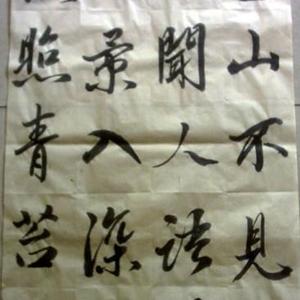 山不見
聞人語
景入深
照青苔